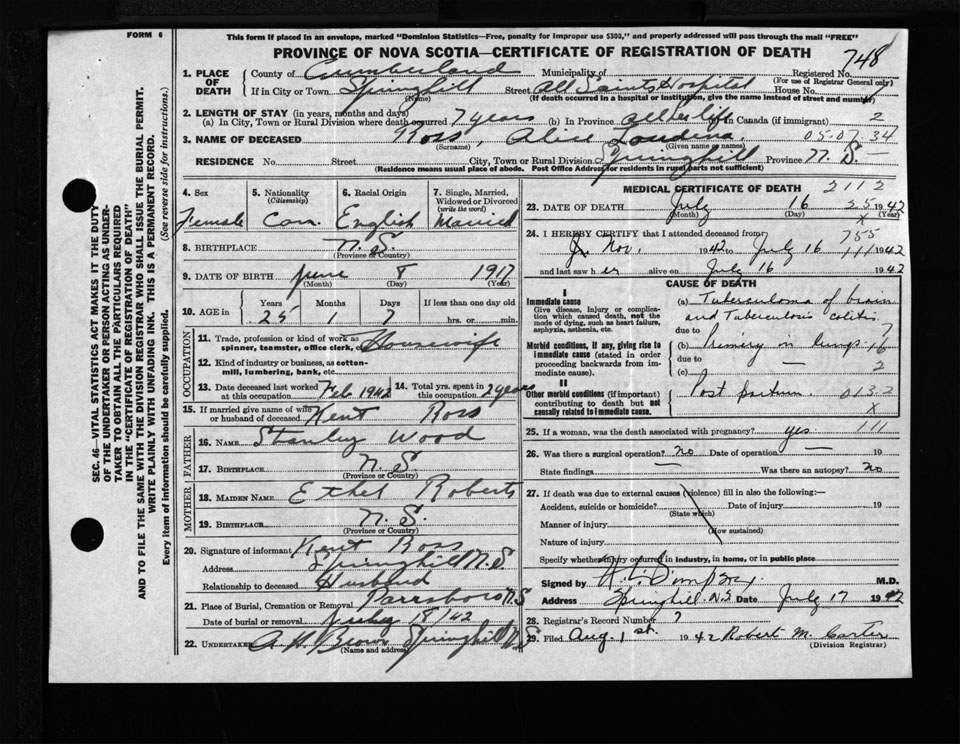 FORM 6
This form if placed in an envelope, marked "Dominion Statistics—Free, penalty for improper use $300," and properly addressed will pass through the mail "FREE"
PROVINCE OF NOVA SCOTIA—CERTIFICATE OF REGISTRATION OF DEATH
748
SEC. 46—VITAL STATISTICS ACT MAKES IT THE DUTY
OF THE UNDERTAKER OR PERSON ACTING AS UNDER-
TAKER TO OBTAIN ALL THE PARTICULARS REQUIRED
IN THE "CERTIFICATE OF REGISTRATION OF DEATH"
AND TO FILE THE SAME WITH THE DIVISION REGISTRAR WHO SHALL ISSUE THE BURIAL PERMIT.
WRITE PLAINLY WITH UNFADING INK. THIS IS A PERMANENT RECORD.
Every item of information should be carefully supplied. (See reverse side for instructions.)
1. PLACE OF DEATH County of Cumberland Municipality of Registered No.
(For use of Registrar General only)
If in City or Town Springhill Street All Saints Hospital House No. 7
(Name) (If death occurred in a hospital or institution, give the name instead of street and number)
2. LENGTH OF STAY (in years, months and days)
(a) In City, Town or Rural Division where death occurred 7 years (b) In Province all her life In Canada (if immigrant) 2
3. NAME OF DECEASED Ross, Alice Loudina. 05-07.34
(Surname) (Given name or names)
RESIDENCE No. Street City, Town or Rural Division Springhill Province N.S.
(Residence means usual place of abode. Post Office Address for residents in rural parts not sufficient)
4. Sex 5. Nationality 6. Racial Origin 7. Single, Married, Widowed or Divorced
(Citizenship) (write the word)
Female Can. English Married
8. BIRTHPLACE N.S.
(Province or Country)
9. DATE OF BIRTH June 8 1917
(Month) (Day) (Year)
10. AGE in Years Months Days If less than one day old
25 1 7 hrs. or min.
OCCUPATION
11. Trade, profession or kind of work as spinner, teamster, office clerk, etc. Housewife
12. Kind of industry or business, as cotton-mill, lumbering, bank, etc.
13. Date deceased last worked at this occupation Feb 1942 14. Total yrs. spent in this occupation 2 years
15. If married give name of wife or husband of deceased Kent Ross
FATHER
16. NAME Stanley Wood
17. BIRTHPLACE N.S.
(Province or Country)
MOTHER
18. MAIDEN NAME Ethel Roberts
19. BIRTHPLACE N.S.
(Province or Country)
20. Signature of informant Kent Ross
Address Springhill N.S
Relationship to deceased Husband
21. Place of Burial, Cremation or Removal Parrsboro N.S
Date of burial or removal July 8/42
22. UNDERTAKER A.H. Brown Springhill N.S
(Name and address)
MEDICAL CERTIFICATE OF DEATH 2112
23. DATE OF DEATH July 16 25 1942
(Month) (Day) (Year)
X
24. I HEREBY CERTIFY that I attended deceased from 755
Nov. 1942 to July 16 111 1942
and last saw her alive on July 16 1942
CAUSE OF DEATH
I
Immediate cause
Give disease, injury or complication which caused death, not the mode of dying, such as heart failure, asphyxia, asthenia, etc.
(a) Tuberculoma of brain
and Tuberculosis colitis.
due to 7
Morbid conditions, if any, giving rise to immediate cause (stated in order proceeding backwards from immediate cause).
(b) Primary in lungs. 16
due to —
(c) 2
II
Other morbid conditions (if important) contributing to death but not causally related to immediate cause.
Post partum. 013-2
X
25. If a woman, was the death associated with pregnancy? yes 111
26. Was there a surgical operation? no Date of operation — 19
State findings — Was there an autopsy? no
27. If death was due to external causes (violence) fill in also the following:—
Accident, suicide or homicide? Date of injury 19
(State which)
Manner of injury
(How sustained)
Nature of injury
Specify whether injury occurred in industry, in home, or in public place
Signed by M.D.
Address Springhill. N.S Date July 17 1942
28. Registrar's Record Number 7
29. Filed Aug. 1st. 1942 Robert M. Carter
(Division Registrar)